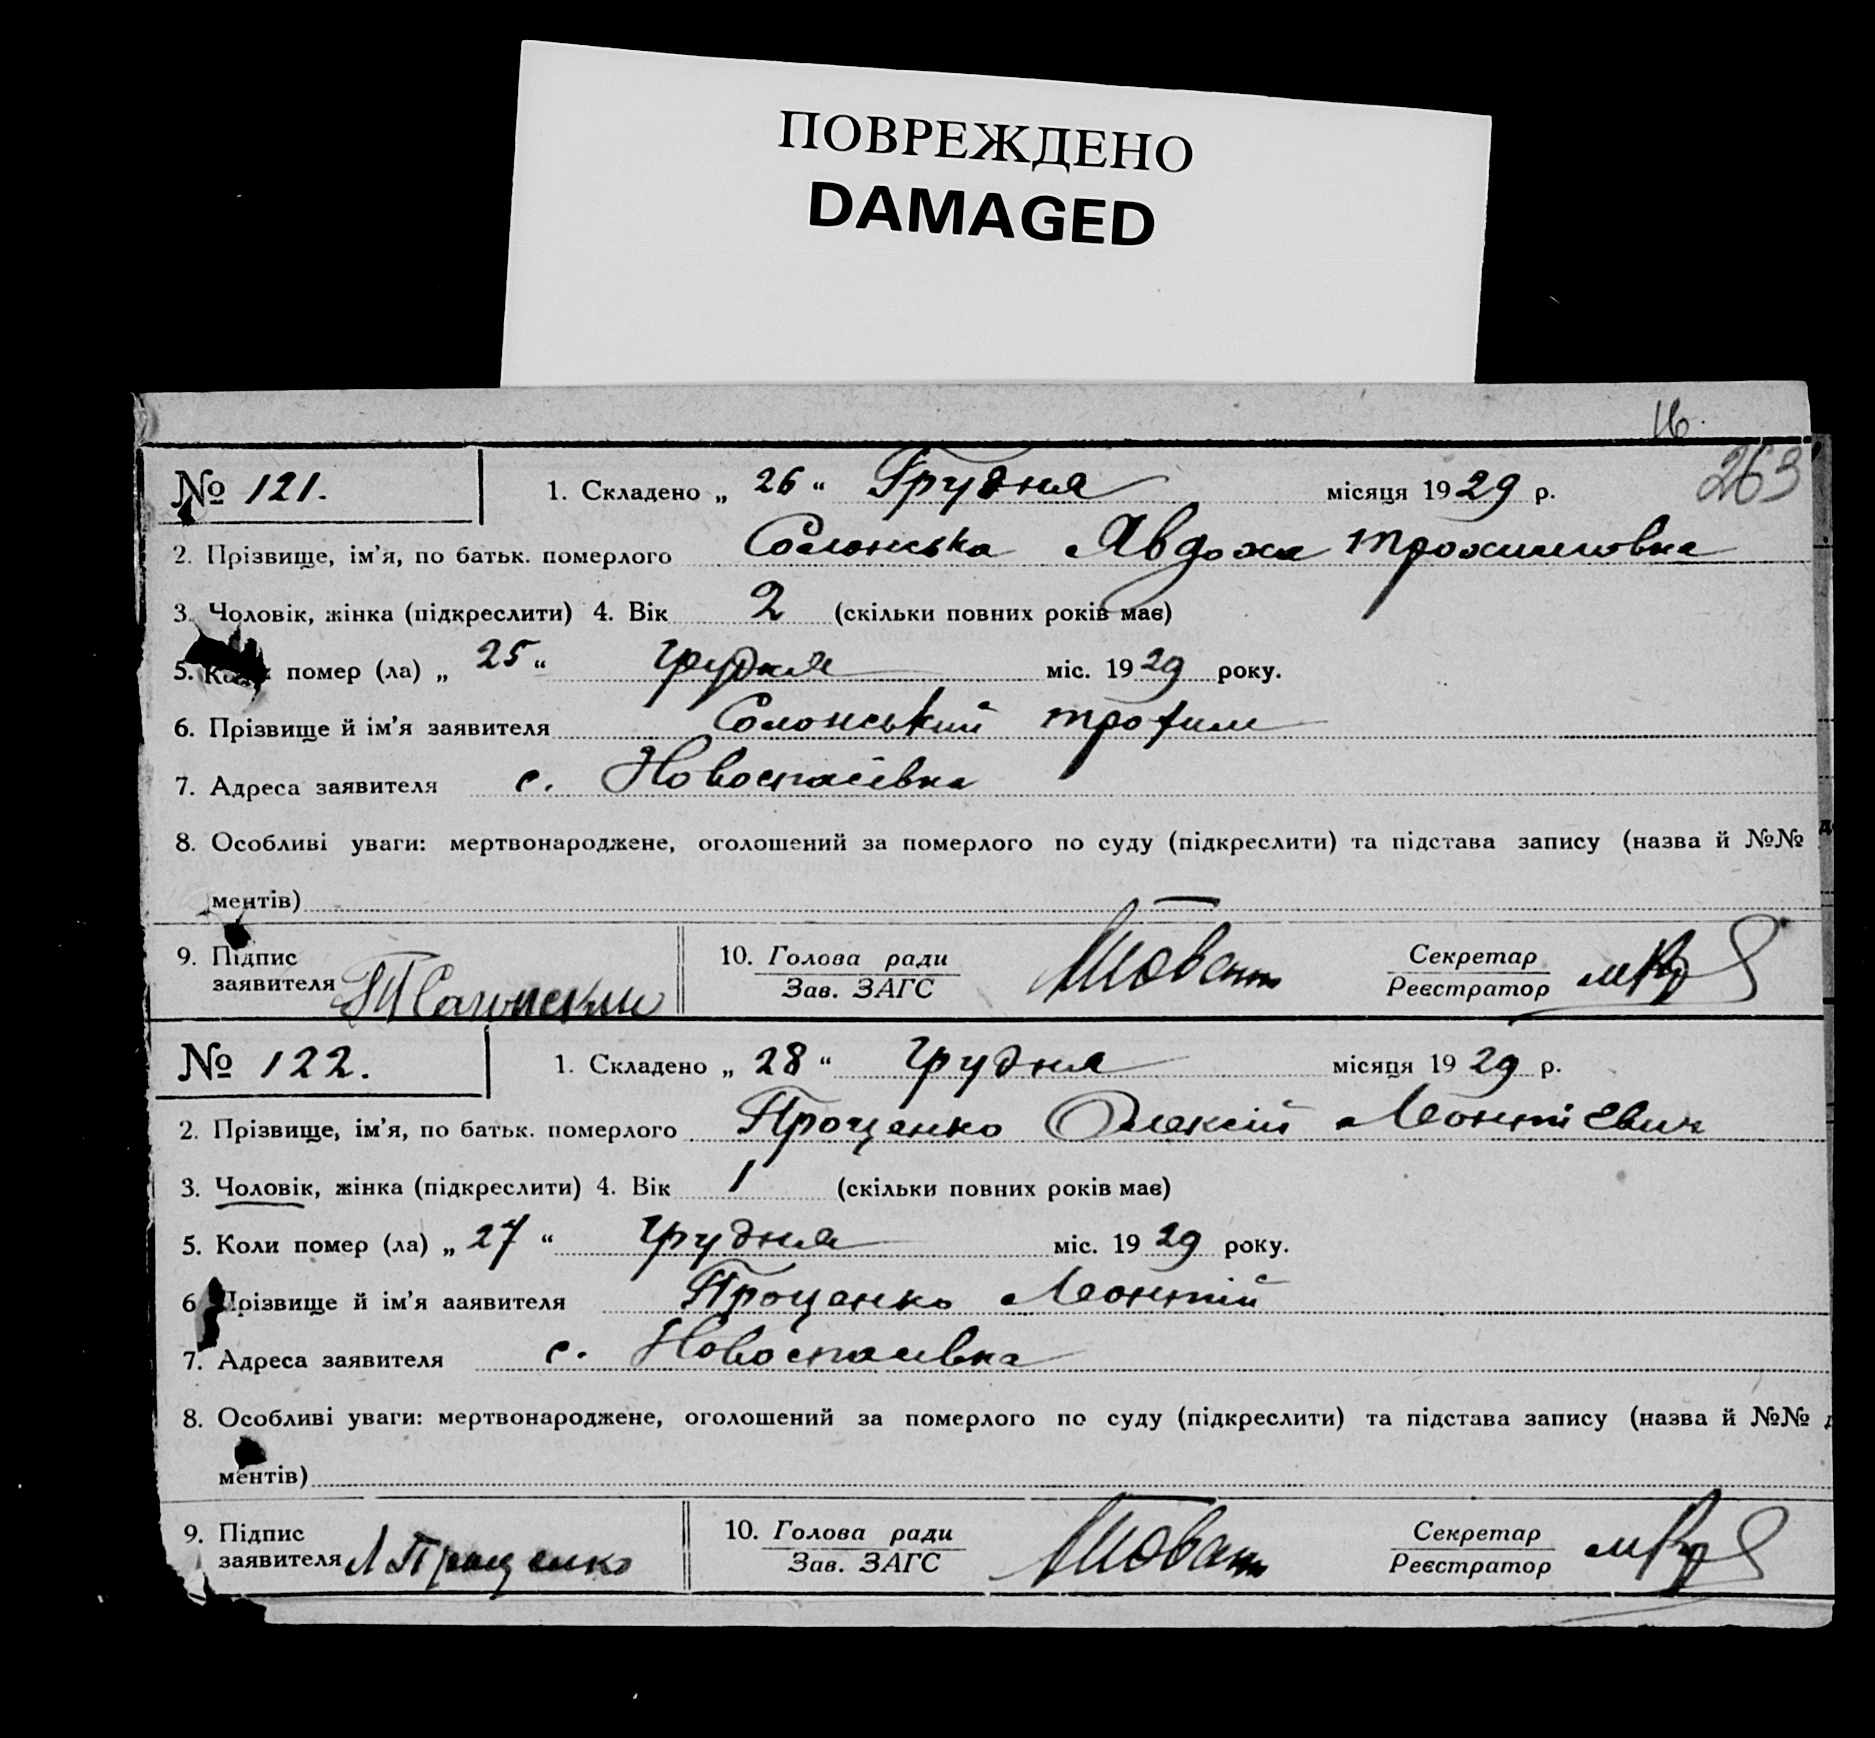 ПОВРЕЖДЕНО
DAMAGED
16.
263
№ 121. 1. Складено „ 26 “ Грудня місяця 1929 р.
2. Прізвище, ім’я, по батьк. померлого Солонська Явдоха Трохимовна
3. Чоловік, жінка (підкреслити) 4. Вік 2 (скільки повних років має)
5. помер (ла) „ 25 “ грудня міс. 1929 року.
6. Прізвище й ім’я заявителя Солонський Трофим
7. Адреса заявителя с. Новоспаівка
8. Особливі уваги: мертвонароджене, оголошений за померлого по суду (підкреслити) та підстава запису (назва й №№
ментів)
9. Підпис заявителя 10. Голова ради Зав. ЗАГС Секретар Реєстратор
№ 122. 1. Складено „ 28 “ грудня місяця 1929 р.
2. Прізвище, ім’я, по батьк. померлого Проценко Олексій Леонтієвич
3. Чоловік, жінка (підкреслити) 4. Вік 1 (скільки повних років має)
5. Коли помер (ла) „ 27 “ грудня міс. 1929 року.
6 Прізвище й ім’я ааявителя Проценко Леонтій
7. Адреса заявителя с. Новоспаївка
8. Особливі уваги: мертвонароджене, оголошений за померлого по суду (підкреслити) та підстава запису (назва й №№ д
ментів)
9. Підпис заявителя Л Проценко 10. Голова ради Зав. ЗАГС Секретар Реєстратор